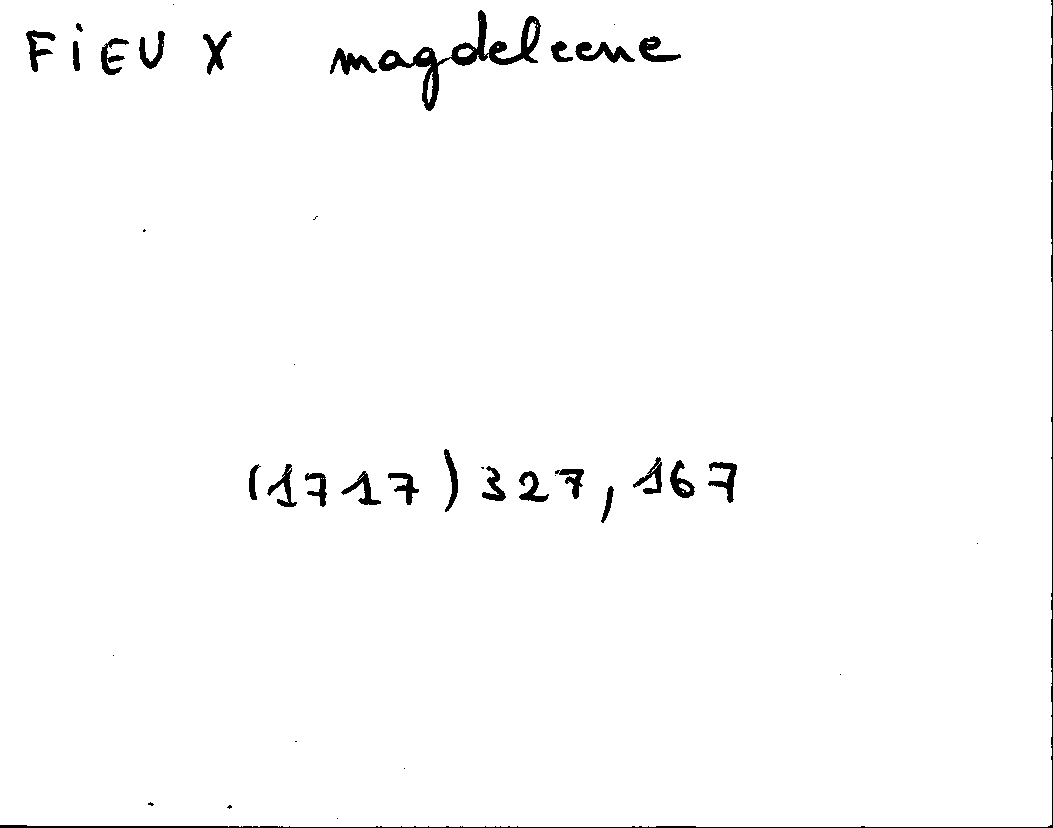 FiEUX magdeleene
(1717) 327, 167